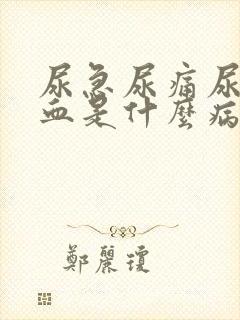 尿急尿痛尿
血是什麼病
鄭麗瓊